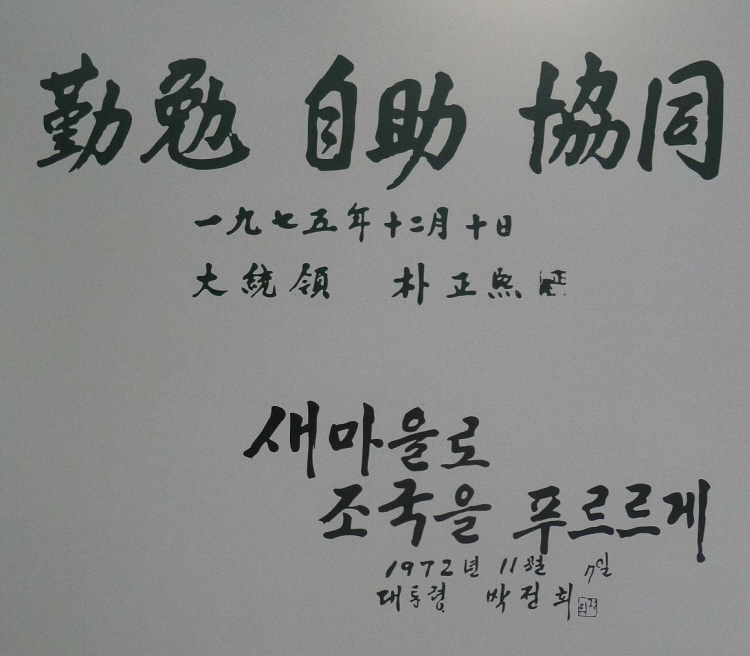 勤勉 自助 協同
一九七五年十二月十日
大統領 朴正熙
새마을로
조국을 푸르르게
1972년 11월 7일
대통령 박정희